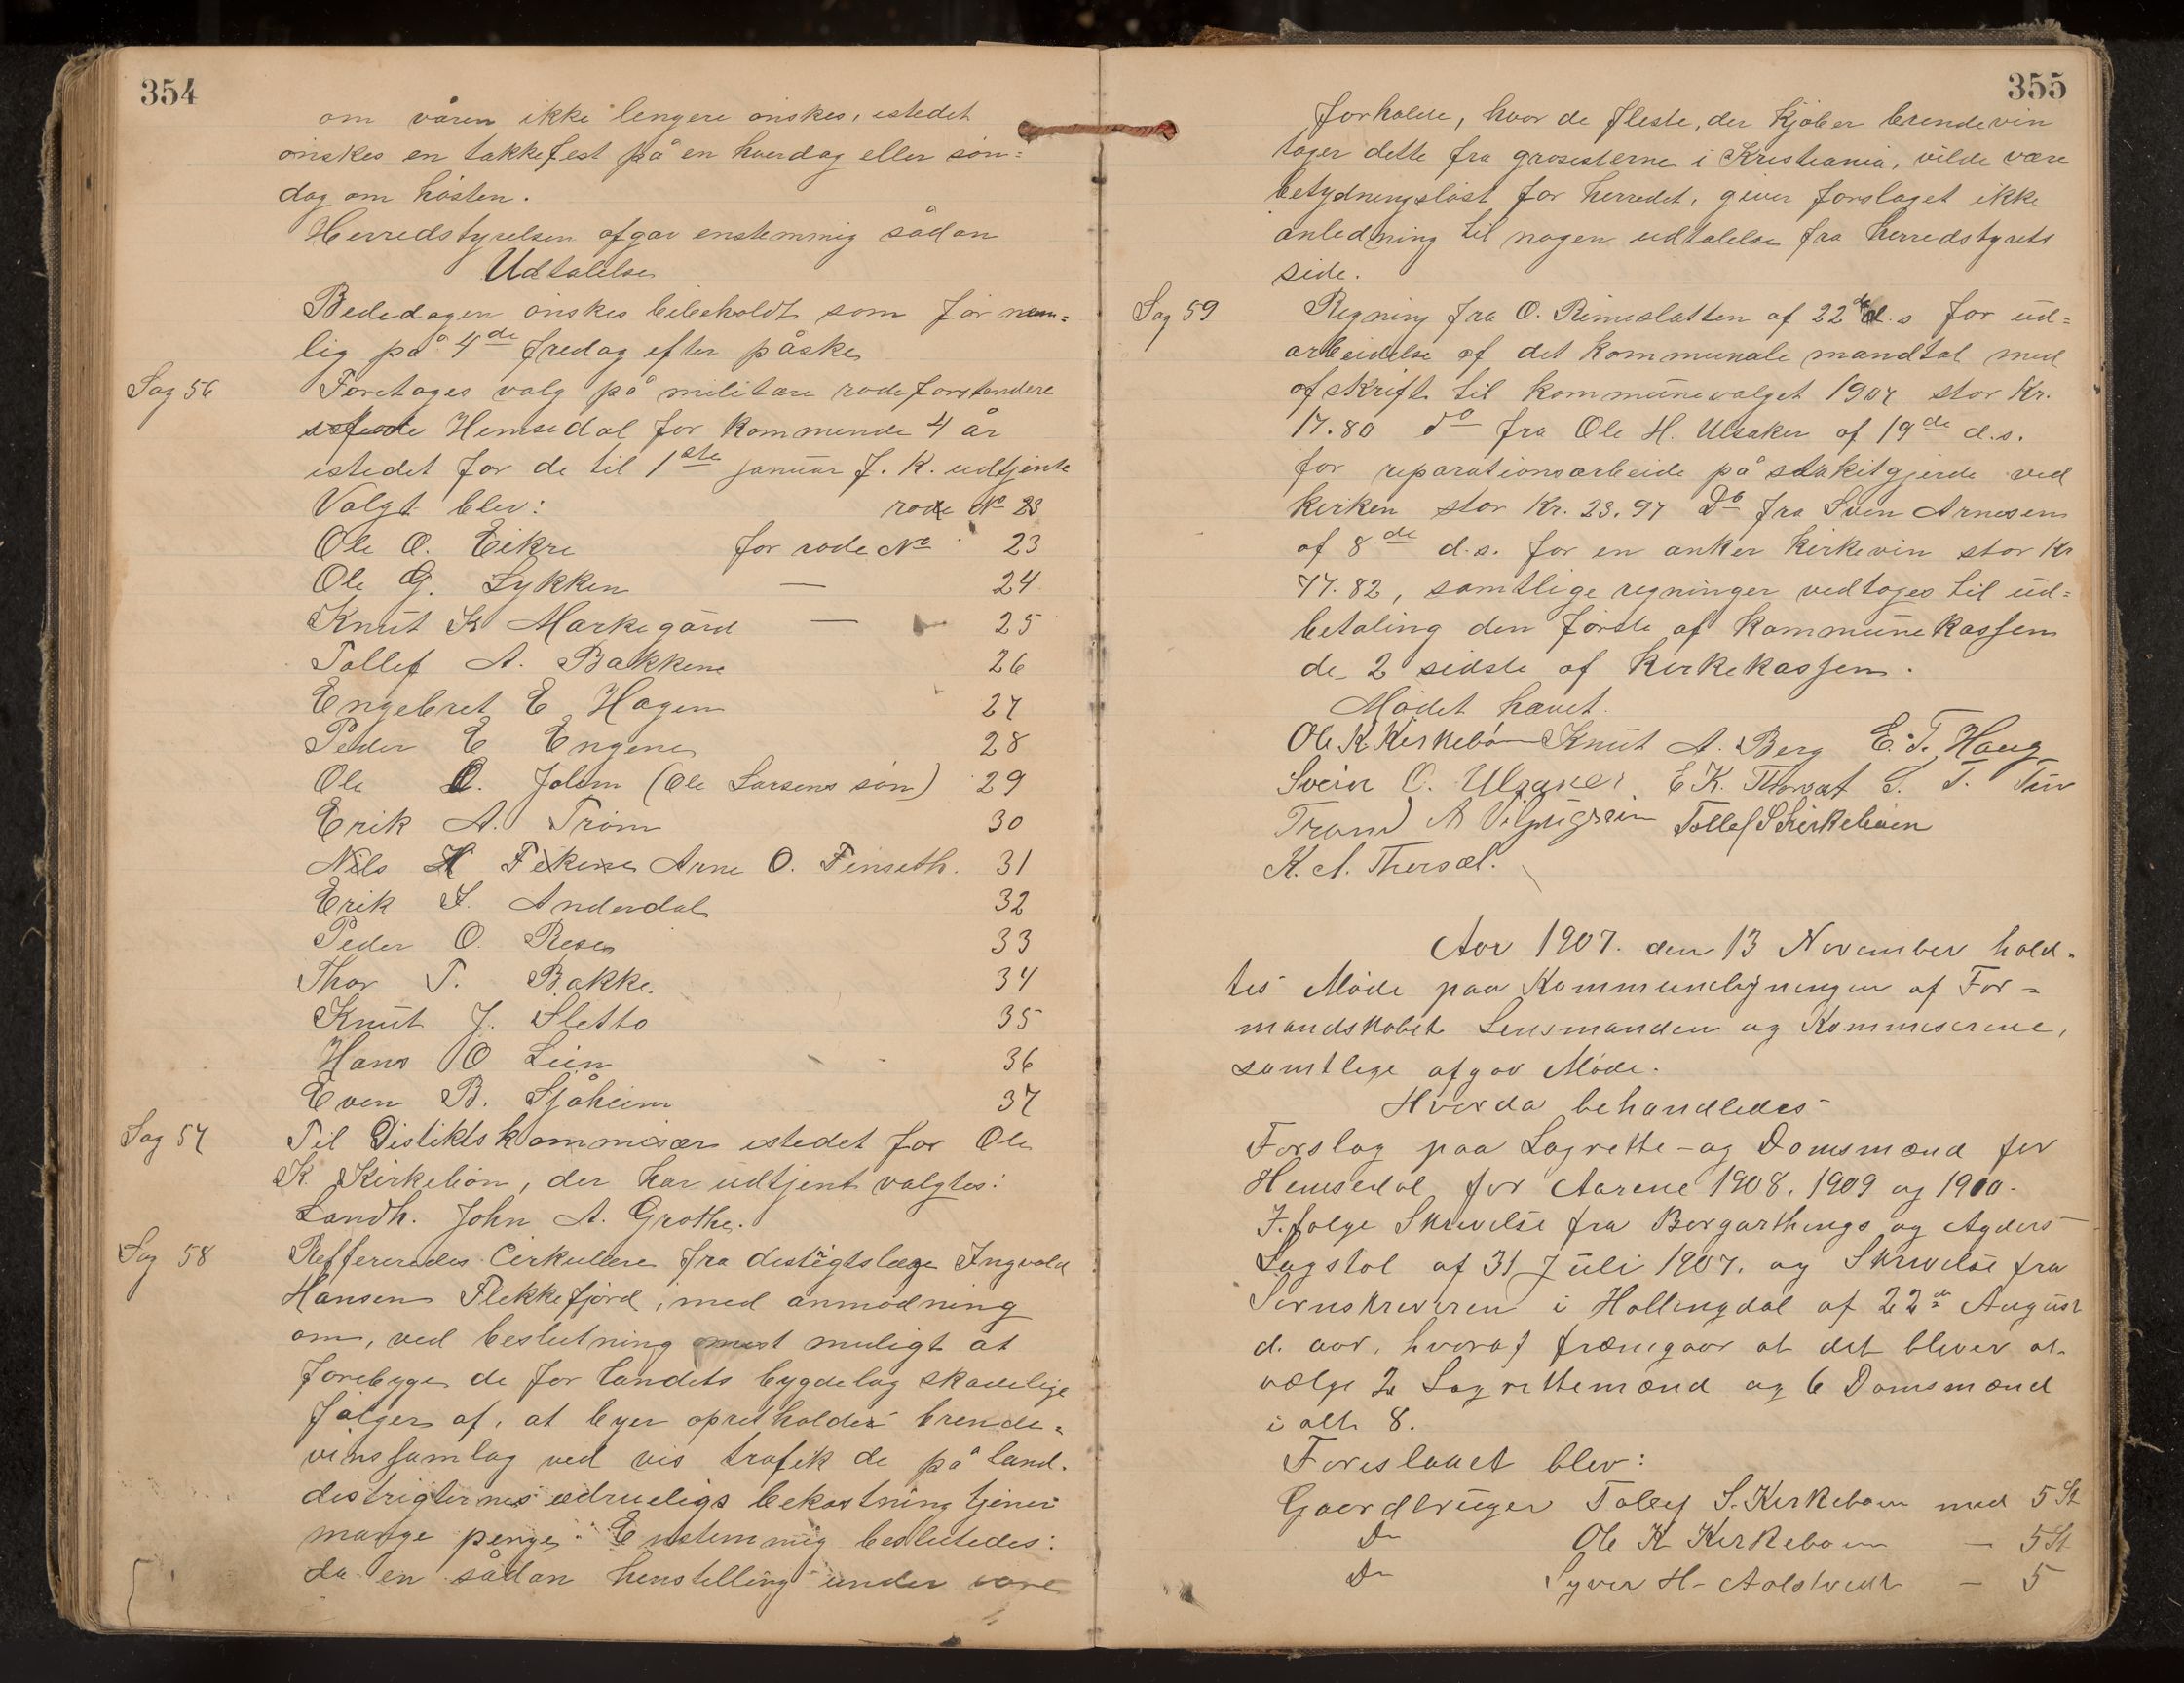 354
om våren ikke lengere ønskes, istedet
ønskes en takkefest på en hverdag eller søn=
dag om høsten.
Herredstyrelsen afgav enstemmig sådan
Udtalelse
Bededagen ønskes bibeholdt som før nem=
lig på 4de fredag efter påske
Sag 56
Foretages valg på militære rodeforstandere
Hemsedal for kommende 4 år
istedet for de til 1ste januar f. K. udtjente
Valgt blev: rode No 23
Ole O. Eikre for rode No 23
Ole G. Lykken — 24
Knut K Markegård — 25
Tollef A. Bakkene 26
Engebret E Hagen 27
Peder E Engene 28
Ole O. Jolem (Ole Larsens søn) 29
Erik A. Trøm 30
Nils H Fekene Arne O. Finseth. 31
Erik S. Anderdal 32
Peder O. Rese 33
Thor T. Bakke 34
Knut J. Sletto 35
Hans O Lien 36
Even B. Sjåheim 37
Sag 57
Til Distiktskommisær istedet for Ole
K. Kirkebøn, der har udtjent valgtes:
Landh. John A. Grøthe.
Sag 58
Reffereredes Cirkulære fra distrigtslæge Ingvald
Hansen Flekkefjord, med anmodning
om, ved beslutning mest muligt at
forebyge de for landets bygdelag skadelige
følger af, at byer opretholder brende=
vinssamlag ved vis trafik de på land.
distrigternes ædrueligs bekostning tjener
mange penge. Enstemmig besluttedes:
da en sådan henstilling under vore
355
forholde, hvor de fleste, der kjøber brendevin
tager dette fra grosisterne i Kristiania, vilde være
betydningsløst for herredet, giver forslaget ikke
anledning til nogen udtalelse fra herredstyrets
side.
Sag 59
Regning fra O. Rimeslåtten af 22de d.s for ud=
arbeidelse af det kommunale mandtal med
afskrift til kommunevalget 1907 stor Kr.
17.80 do fra Ole H. Ulsaker af 19de d.s.
for reparationsarbeide på stakitgjerde ved
kirken stor Kr. 23.97 Do fra Sven Arnesen
af 8de d.s. for en anker kirkevin stor Kr
77.82, samtlige regninger vedtages til ud=
betaling den første af kommunekassen
de 2 sidste af kirkekassen.
Mødet hævet.
Ole K Kirkebø Knut A. Berg E. T. Haug
Svein O. Ulsaker E K. Thorset S. T. Tuv
Trond A Tollef S Kirkebøen
K. A. Thorset.
Aar 1907. den 13 November hold=
tes Møde paa Kommunebygningen af For=
mandskabet Lensmanden og Kommiserene,
samtlige afgav Møde.
Hvorda behandledes
Forslag paa Lagrette-og Domsmænd for
Hemsedal for Aarene 1908. 1909 og 1910.
I.følge Skrivelse fra Borgarthings og Agders
Lagstol af 31 Juli 1907. og Skrivelse fra
Sornskriveren i Hallingdal af 22de August
d. aar, hvoraf fræmgaar at det bliver at
vælge 2 Lagrettemænd og 6 Domsmænd
i alt 8.
Foreslaaet blev:
Gaardbruger Tolef S. Kirkebøen med 5 St
Do Ole K Kirkebøen — 5 St
Do Syver H- Aalstvedt — 5